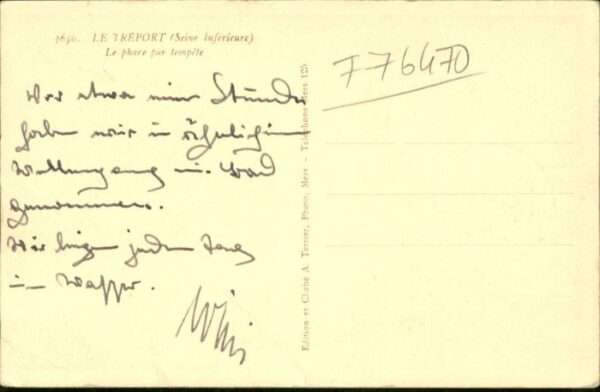 1650. LE TRÉPORT (Seine Inférieure)
Le phare par tempête
Vor etwa einer Stunde
haben wir in ähnlichem
Wellengang ein Bad
genommen.
Wir liegen jeden Tag
im Wasser.
Willi
776470
Edition et Cliché A. Terrier, Photo, Mers - Téléphone Mers 125